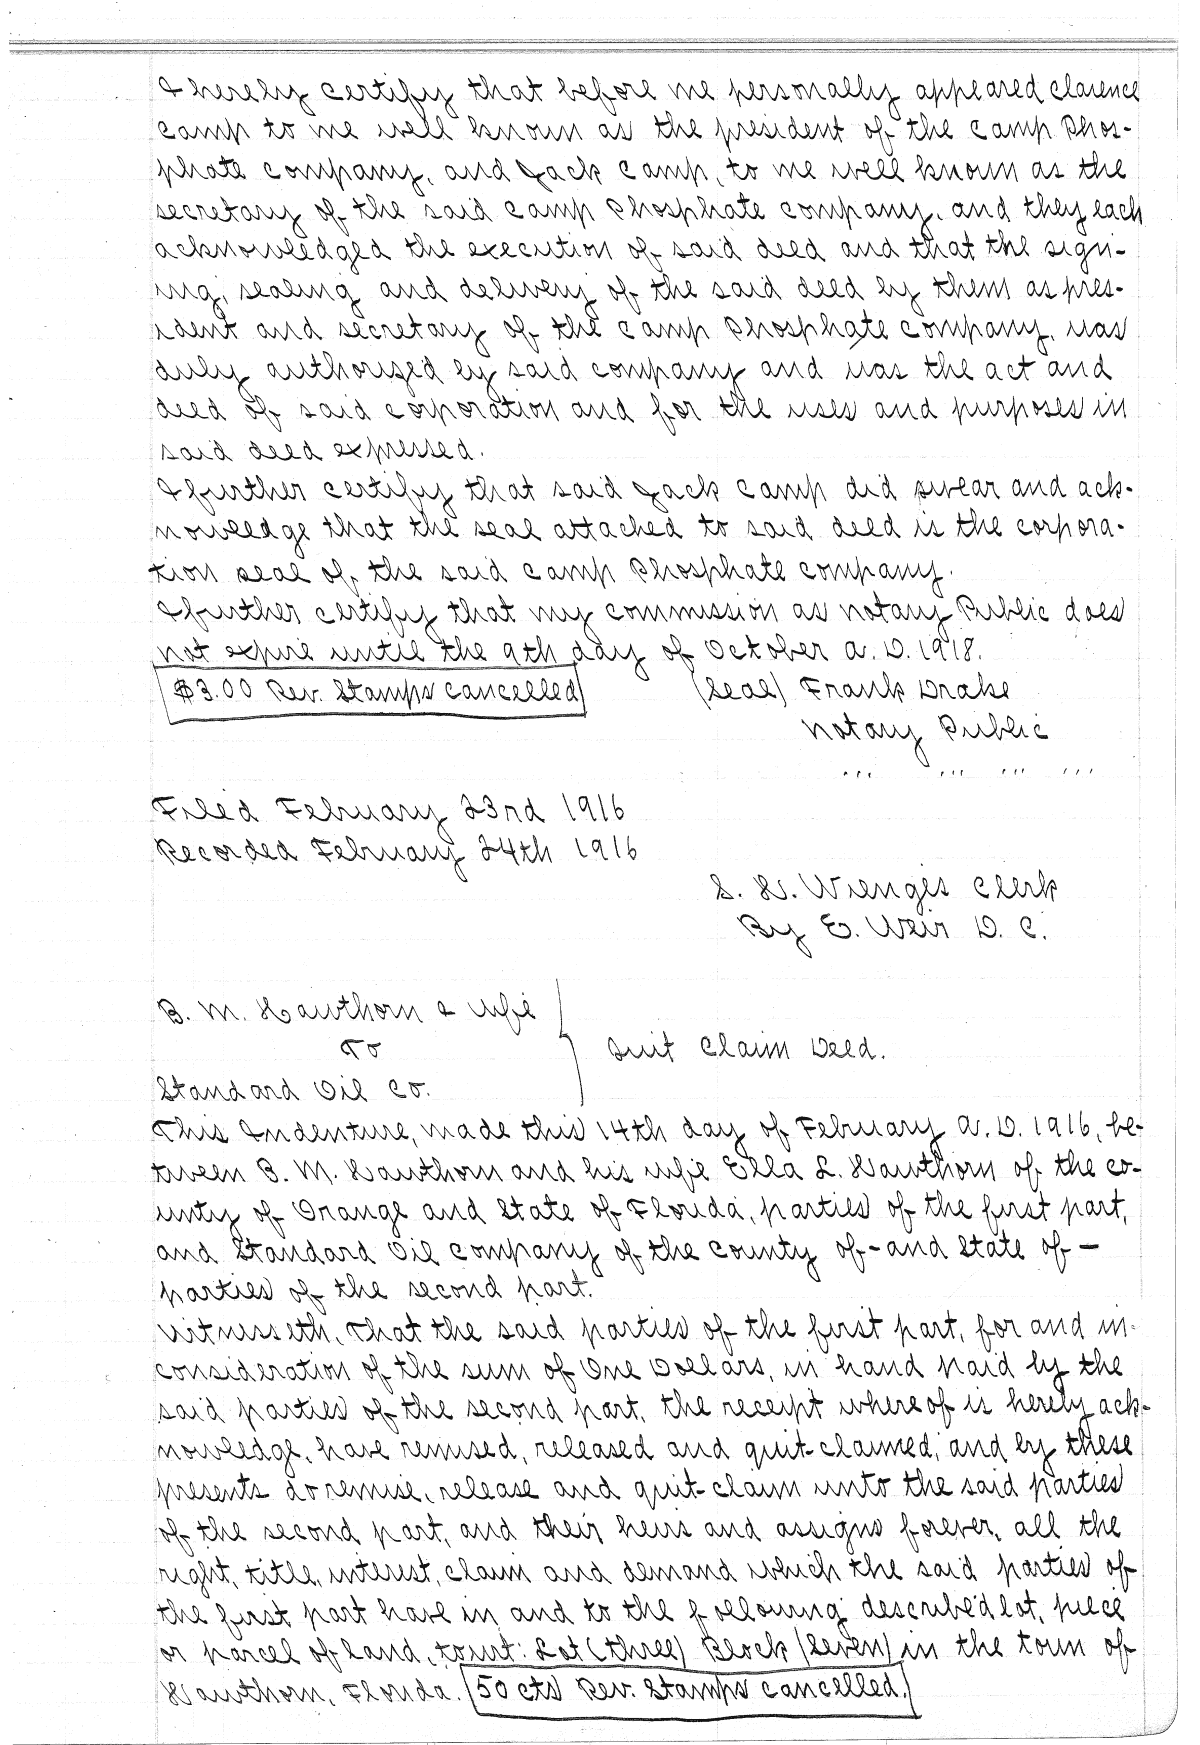 I hereby certify that before me personally appeared Clarence
Camp to me well known as the president of the Camp Phos-
phate Company, and Jack Camp, to me well known as the
secretary of the said Camp Phosphate Company, and they each
acknowledged the execution of said deed and that the sign-
ing, sealing and delivery of the said deed by them as pres-
ident and secretary of the Camp Phosphate Company, was
duly authorized by said company and was the act and
deed of said corporation and for the uses and purposes in
said deed expressed.
I further certify that said Jack Camp did swear and ack-
nowledge that the seal attached to said deed is the corpora-
tion seal of, the said Camp Phosphate Company.
I further certify that my commission as Notary Public does
not expire until the 9th day of October A.D. 1918.
$3.00 Rev. Stamps cancelled (Seal) Frank Drake
Notary Public
,,, ,,, ,,, ,,,
Filed February 23rd 1916
Recorded February 24th 1916
S. H. Wienges Clerk
By E. Weir D. C.
B. M. Hawthorn & wife
To Quit Claim Deed.
Standard Oil Co.
This Indenture, made this 14th day of February A.D. 1916, be-
tween B. M. Hawthorn and his wife Ella L. Hawthorn of the co-
unty of Orange and State of Florida, parties of the first part,
and Standard Oil Company of the County of - and State of -
parties of the second part.
Witnesseth, That the said parties of the first part, for and in-
consideration of the sum of One Dollars, in hand paid by the
said parties of the second part, the receipt whereof is hereby ack-
nowledge, have remised, released and quit-claimed, and by these
presents do remise, release and quit-claim unto the said parties
of the second part, and their heirs and assigns forever, all the
right, title, interest, claim and demand which the said parties of
the first part have in and to the following described lot, piece
or parcel of land, towit: Lot (three) Block (Seven) in the town of
Hawthorn, Florida. 50 cts Rev. Stamps cancelled.